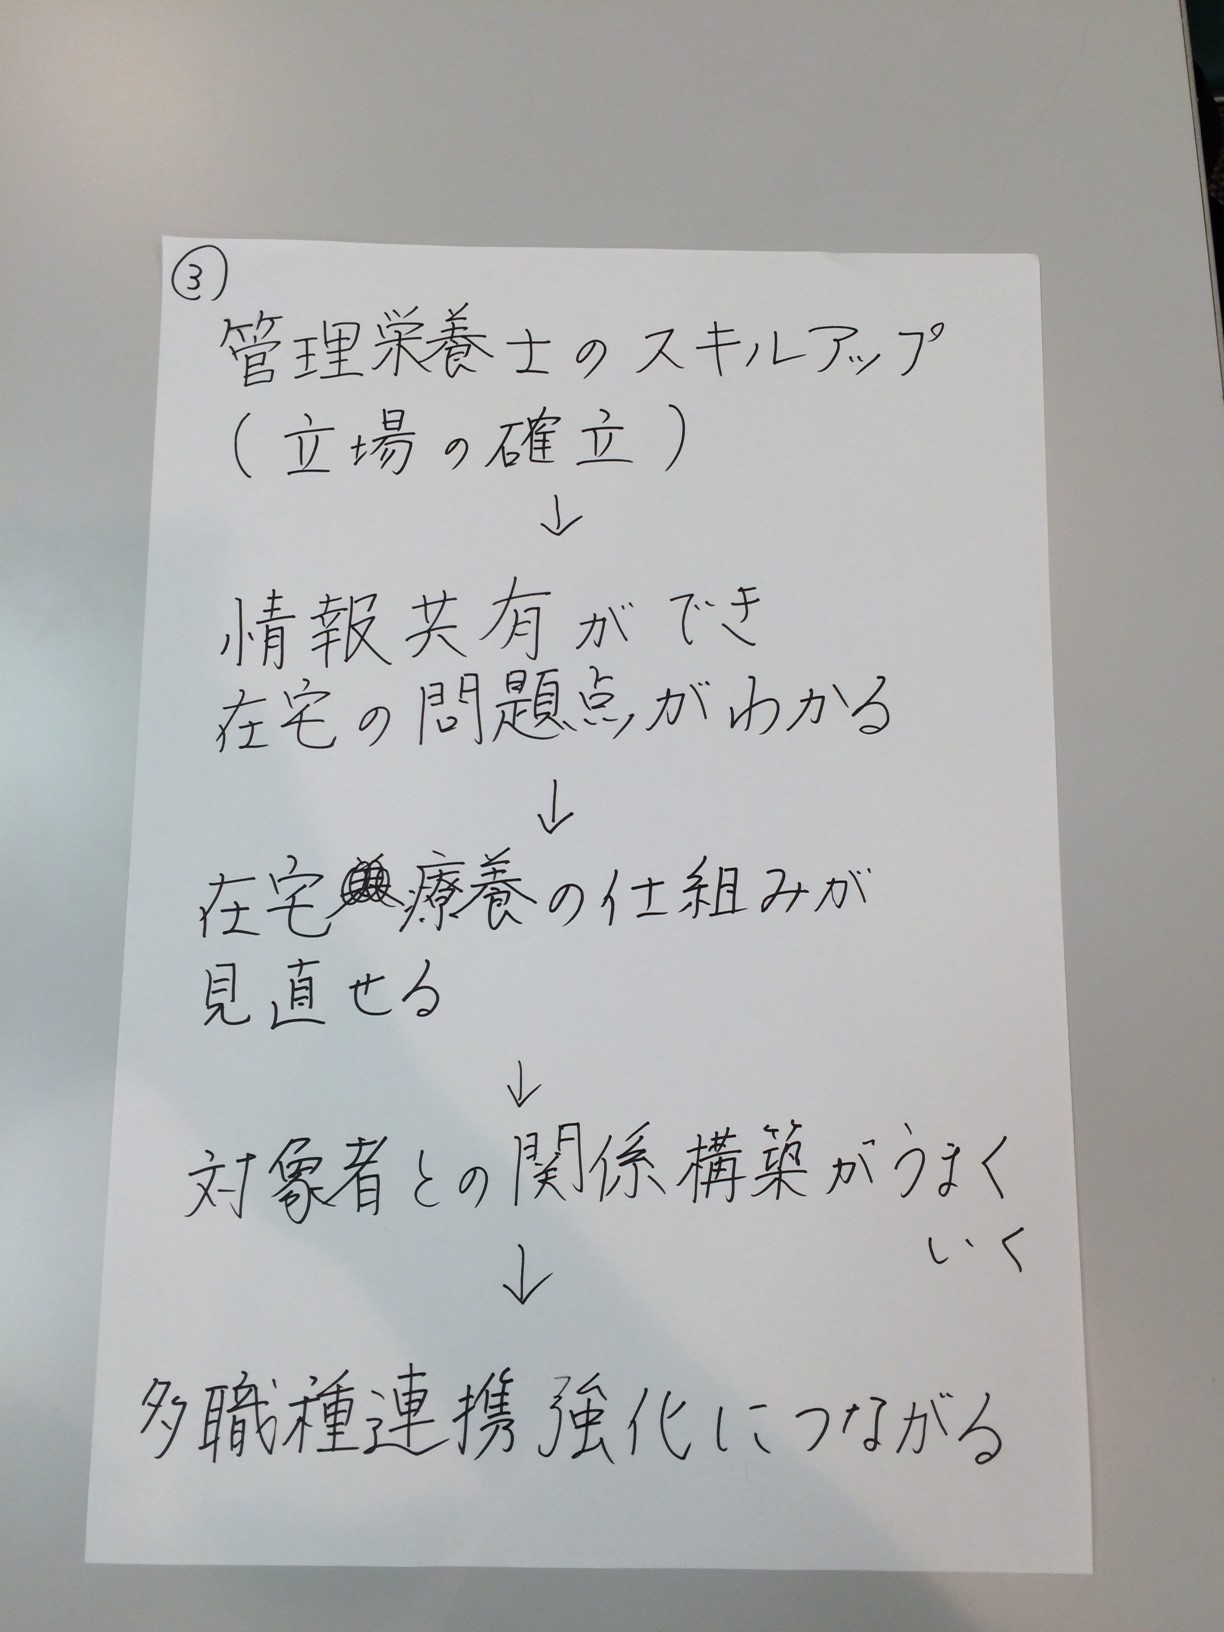 ③
管理栄養士のスキルアップ
(立場の確立)
↓
情報共有ができ
在宅の問題点がわかる
↓
在宅療養の仕組みが
見直せる
↓
対象者との関係構築がうまく
いく
↓
多職種連携強化につながる